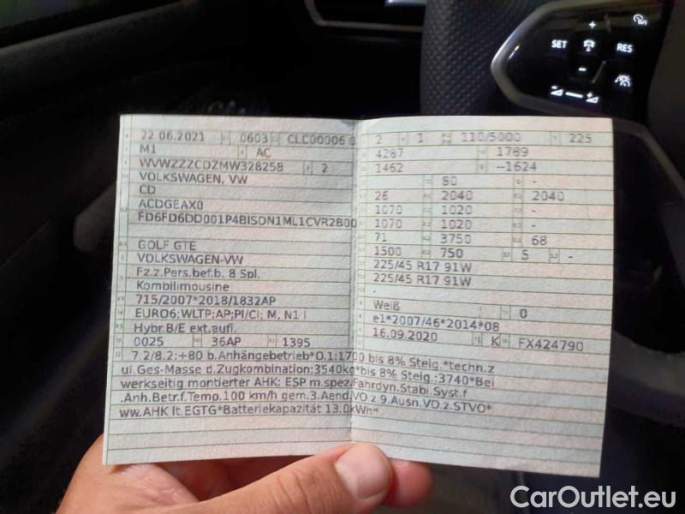 SET
RES
22.06.2021 0603 CLC00006 0
M1 AC
WVWZZZCDZMW328258 2
VOLKSWAGEN, VW
CD
ACDGEAX0
FD6FD6DD001P4BISDN1ML1CVR2B00
GOLF GTE
VOLKSWAGEN-VW
Fz.z.Pers.bef.b. 8 Spl.
Kombilimousine
715/2007*2018/1832AP
EURO6;WLTP;AP;PI/CI; M, N1 I
Hybr.B/E ext.aufl.
0025 36AP 1395
2 1 110/5000 225
4287 1789
1462 -1624
50 -
26 2040 2040
1070 1020 -
1070 1020 -
71 3750 68
1500 750 5 -
225/45 R17 91W
225/45 R17 91W
-
Weiß 0
e1*2007/46*2014*08
16.09.2020 K FX424790
7.2/8.2:+80 b.Anhängebetrieb*O.1:1700 bis 8% Steig.*techn.z
ul.Ges-Masse d.Zugkombination:3540kg*bis 8% Steig.:3740*Bei
werkseitig montierter AHK: ESP m.spez.Fahrdyn.Stabi.Syst.f
.Anh.Betr.f.Temp.100 km/h gem.3.Aend.VO.z.9.Ausn.VO.z.STVO*
ww.AHK lt.EGTG*Batteriekapazität 13.0kWh*
CarOutlet.eu